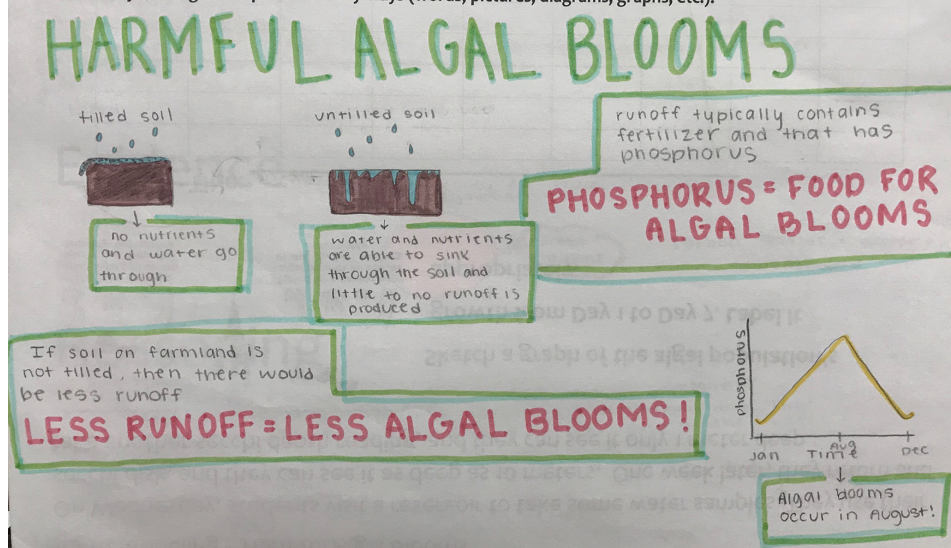 HARMFUL ALGAL BLOOMS
tilled soil
no nutrients
and water go
through
untilled soil
water and nutrients
are able to sink
through the soil and
little to no runoff is
produced
runoff typically contains
fertilizer and that has
phosphorus
PHOSPHORUS = FOOD FOR
ALGAL BLOOMS
If soil on farmland is
not tilled, then there would
be less runoff
LESS RUNOFF = LESS ALGAL BLOOMS!
phosphorus
Jan Aug Dec
Time
Algal blooms
occur in August!